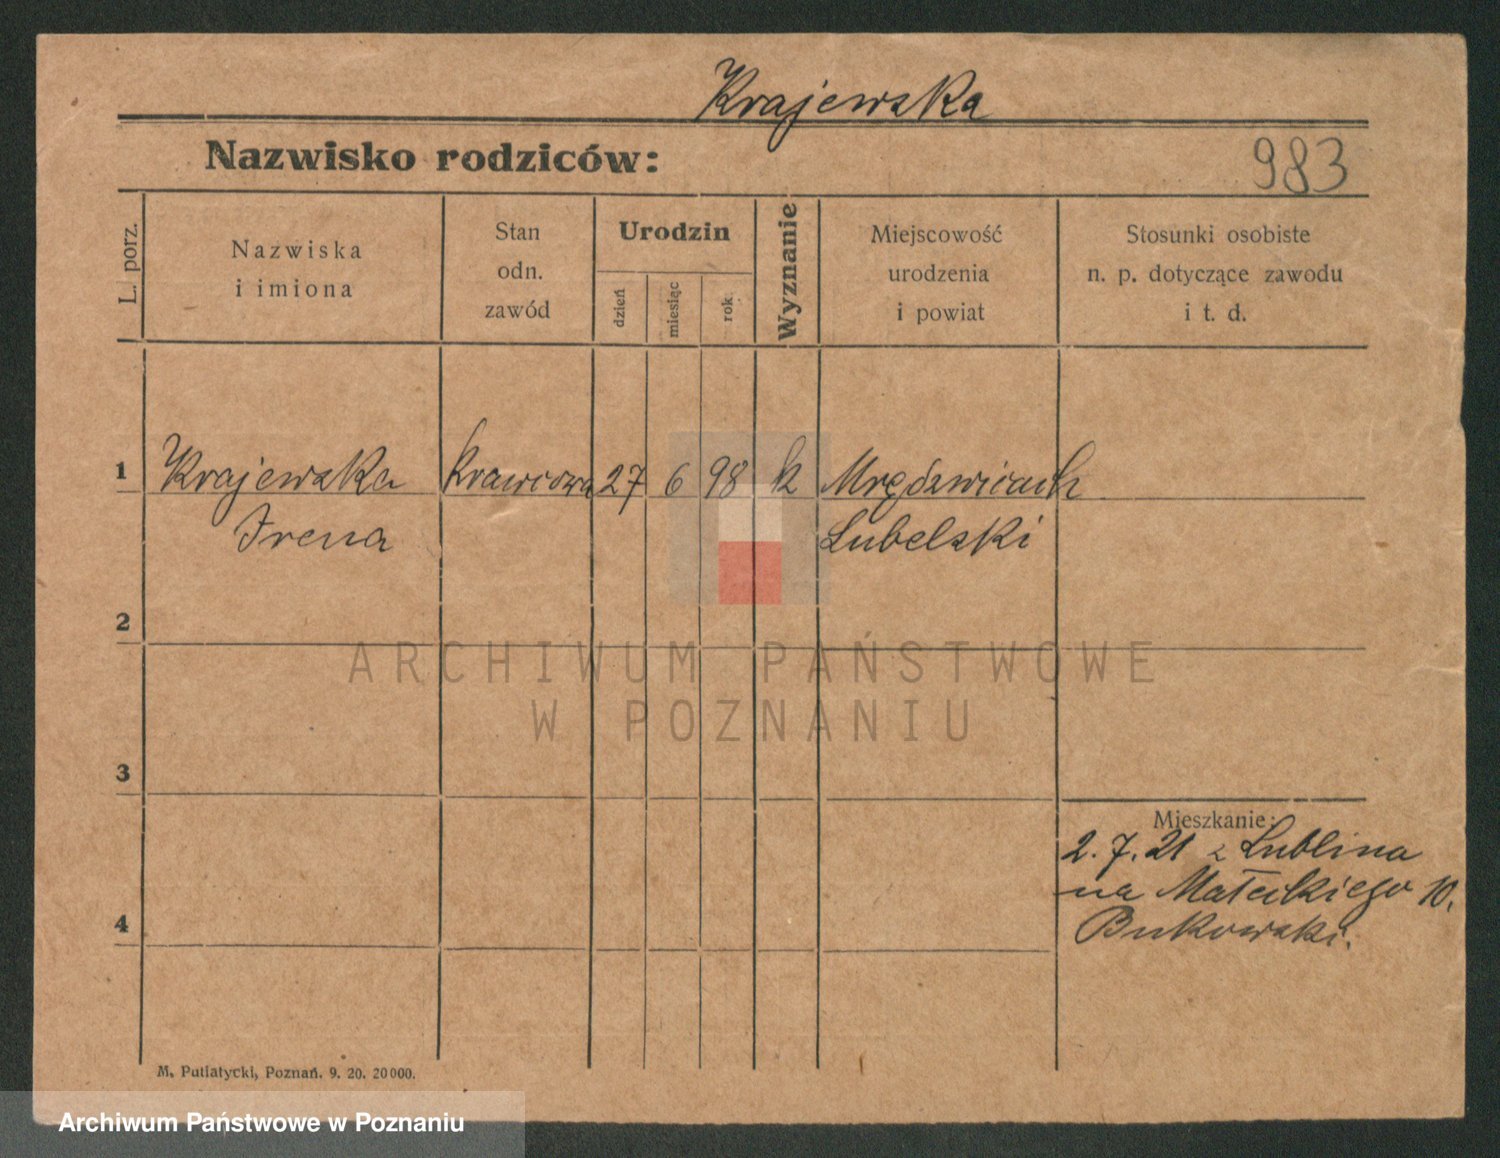 Krajewska
Nazwisko rodziców:
983
L. porz.
Nazwiska
i imiona
Stan
odn.
zawód
Urodzin
dzień
miesiąc
rok
Wyznanie
Miejscowość
urodzenia
i powiat
Stosunki osobiste
n. p. dotyczące zawodu
i t. d.
1
Krajewska
krawcowa
27
6
98
k
Irena
Lubelski
2
ARCHIWUM PAŃSTWOWE
W POZNANIU
3
Mieszkanie:
2.7.21 z Lublina
na Małeckiego 10.
4
Bukowski.
M. Putiatycki, Poznań. 9. 20. 20000.
Archiwum Państwowe w Poznaniu